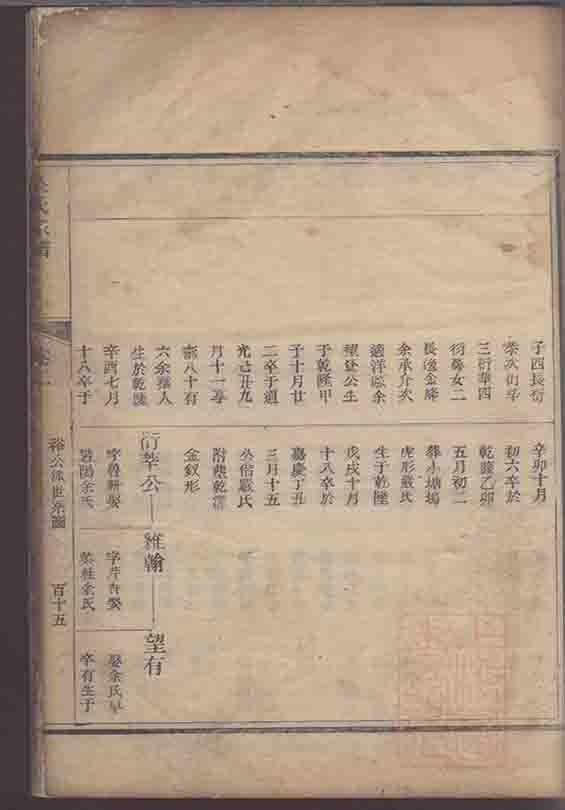 子四長衍
次衍華
三衍華四
衍舜女二
長適金峰
余承介次
適洋源余
耀登公生
于乾隆甲
子十月廿
二卒于道
光己丑九
月十一享
壽八十有
六余孺人
生於乾隆
辛酉七月
十八卒于
辛卯十月
初六卒於
乾隆乙卯
五月初二
葬小塘塢
虎形嚴氏
生于乾隆
戊戌十月
十八卒於
嘉慶丁丑
三月十五
公偕嚴氏
附葬乾潭
金釵形
衍華公 維翰 望有
字魯軒娶
陽余氏
字芹香娶
葉社余氏
娶余氏早
卒有生于
裕公派世系圖
百十五